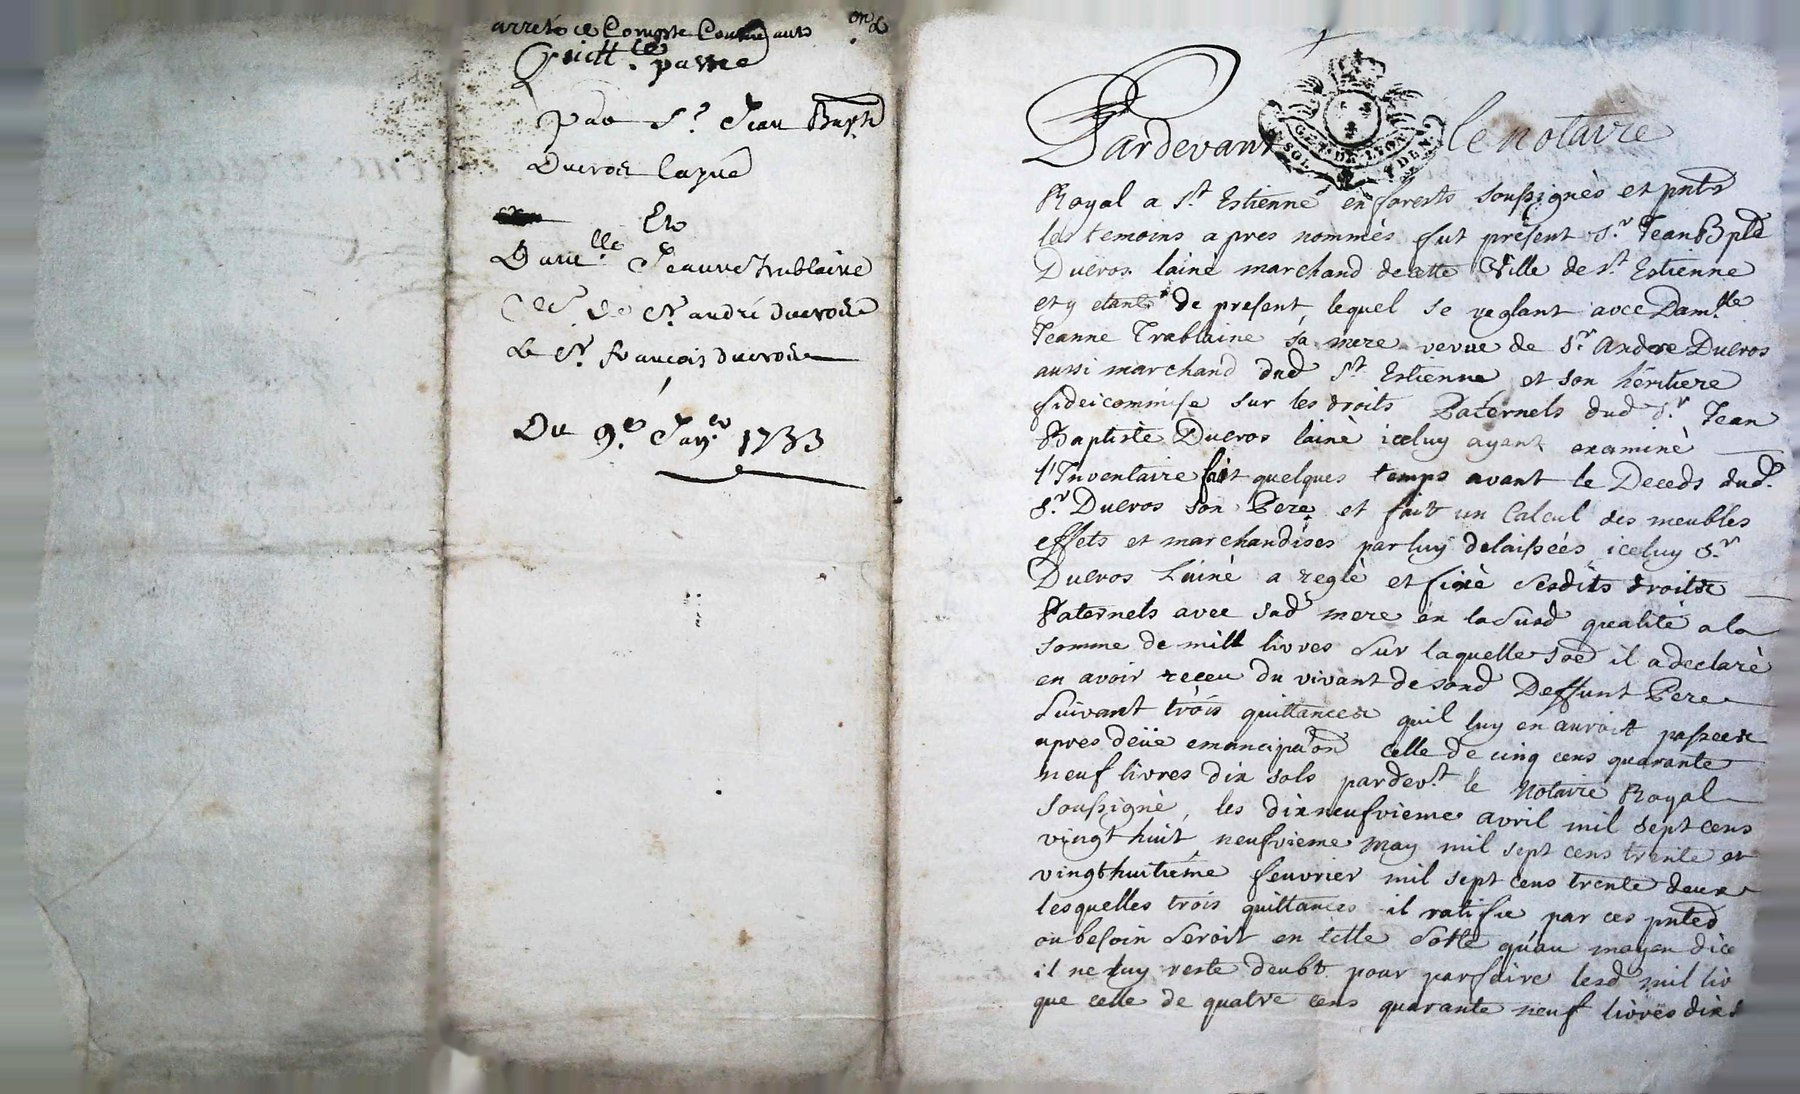 arreté de Compte
Quitt.ce passé
par Sr Jean Bapte
Ducros laqué
Et
Dame.lle Jeanne trablaine
de Sr andré ducros
Le Sr françois ducros
Du 9.e Janer 1733
Pardevant le notaire
GET. DE LYON
SOL DEN
Royal a St Estienne en forests soussignès et pnts
les temoins apres nommés fut présent Sr Jean Bpte
Ducros lainé marchand de cette Ville de St Estienne
et y etant de present, lequel se reglant avec Dam.lle
Jeanne Trablaine sa mere veuve de Sr Andre Ducros
aussi marchand dud St Estienne et son héritiere
fideicommise sur les droits Paternels dud Sr Jean
Baptiste Ducros lainè iceluy ayant examinè
l'Inventaire fait quelques temps avant le Deceds dud.
Sr Ducros son Pere et fait un Calcul des meubles
effets et marchandises par luy delaissées iceluy Sr
Ducros Lainé a reglè et fixè sesdits droits
Paternels avec sad mere en lasusd qualité a la
somme de mill livres sur laquelle soe il a declaré
en avoir receu du vivant de sond Deffunt Pere
Suivant trois quittances quil luy en auroit passees
apres deüe emancipaon celle de cinq cens quarante
neuf livres dix sols pardevt le Notaire Royal
soussignè, les dixneufvieme avril mil sept cens
vingt huit, neufvieme may mil sept cens trente et
vingthuitieme feuvrier mil sept cens trente deux
lesquelles trois quittances il ratifie par ces pntes
ou besoin seroit en telle sorte qu'au moyen dice
il ne luy reste deubt pour parfaire lesd mil liv
que celle de quatre cens quarante neuf livres dix s